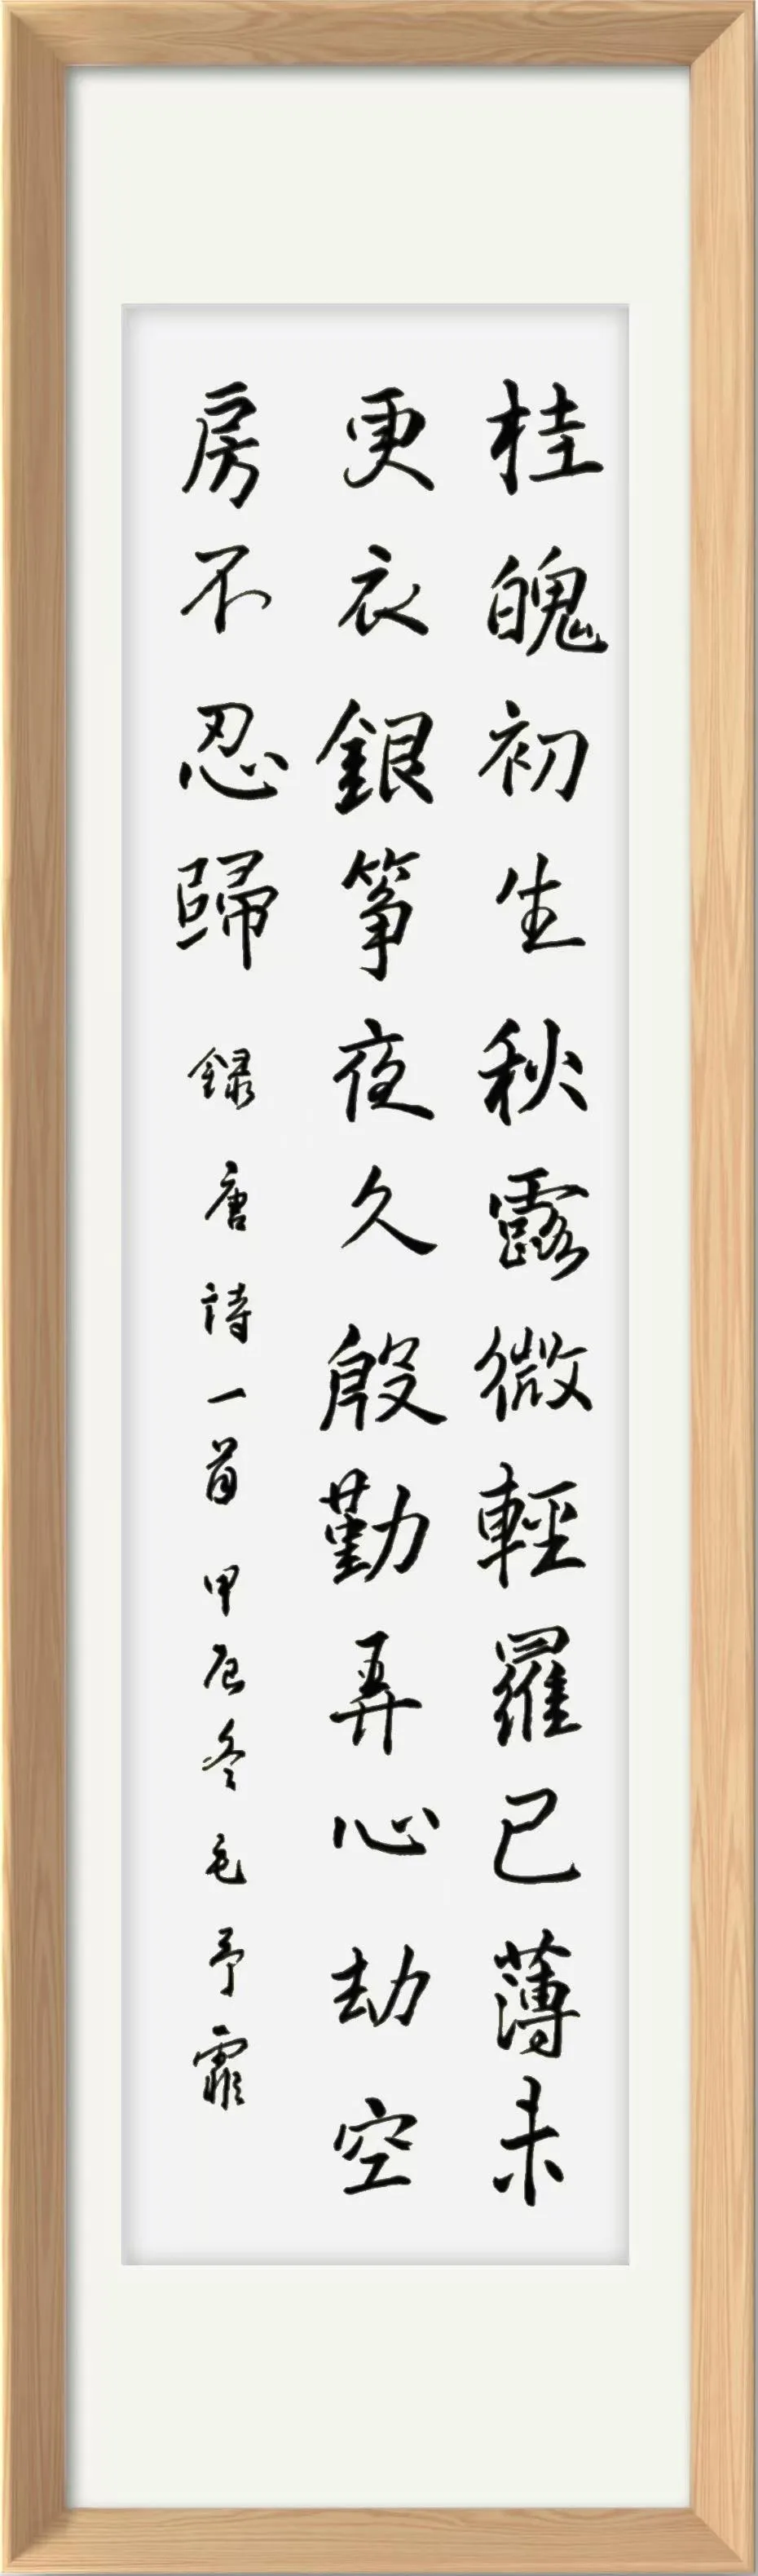 桂魄初生秋露微輕羅已薄未
更衣銀筝夜久殷勤弄心劫空
房不忍歸 録唐詩一首 甲辰冬毛予霏